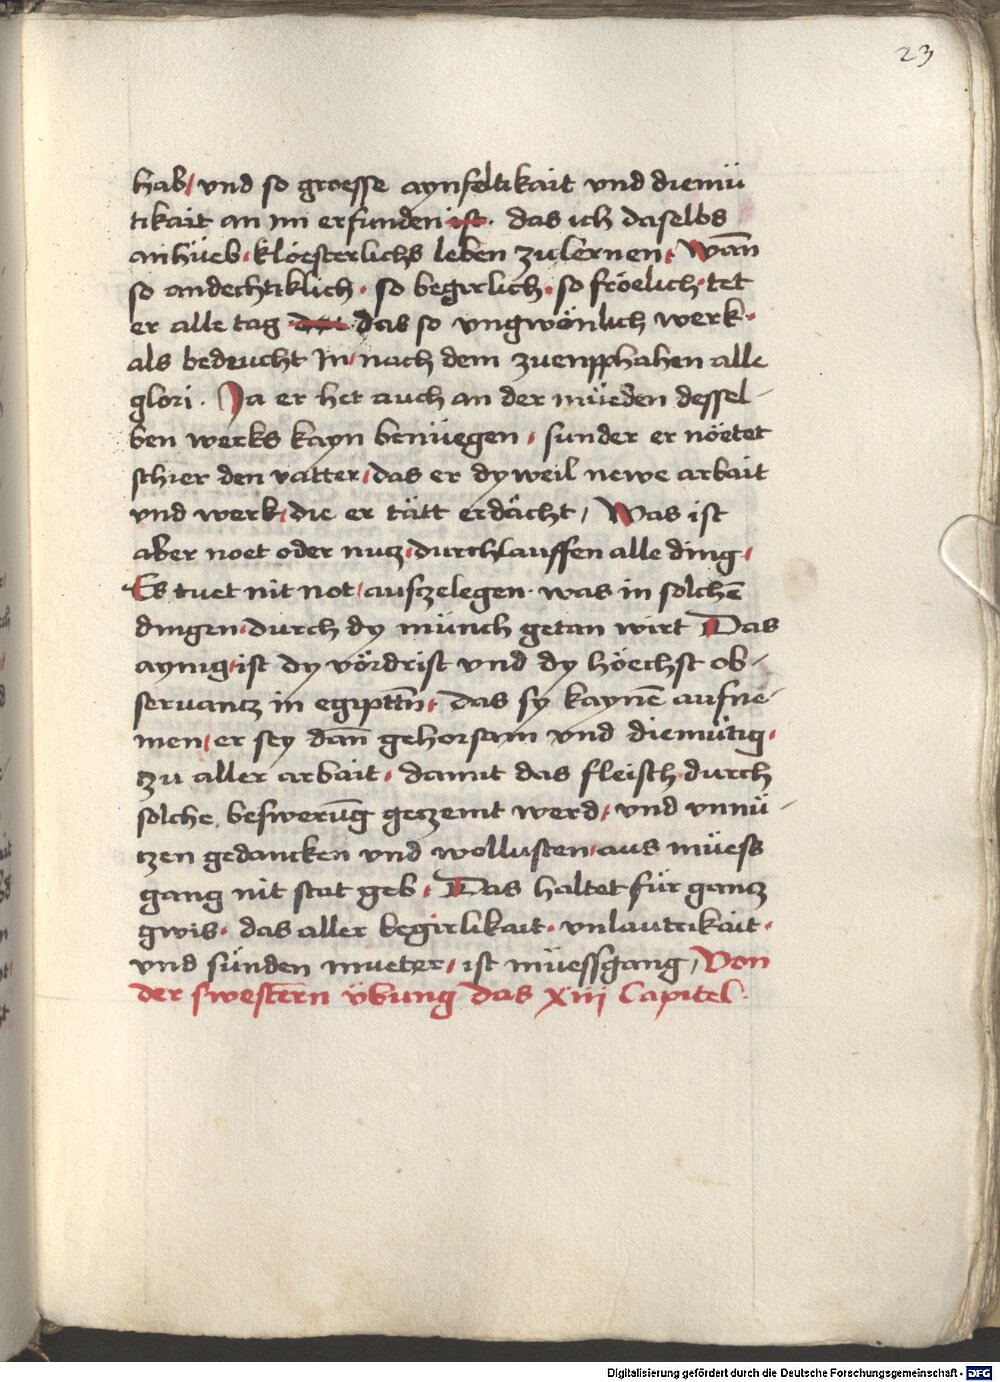 23
hab / vnd so groesse aynfeltikait vnd diemü
tikait an im erfunden ist · das ich daselbs
anhüeb · kloesterlichs leben zu lernen · Wān
so andechtiklich · so begirlich · so fröelich · tet
er alle tag das so vngwönlich werk ·
als bedeucht In / nach dem zuempphahen alle
glori · Ja er het auch an der müeden dessel-
ben werks kayn benüegen / sunder er nöetet
schier den vatter / das er dyweil newe arbait
vnd werk / die er tätt erdächt / Was ist
aber noet oder nucz · durchlauffen alle ding /
Es tuet nit not / ausczelegen · was in solchē
dingen · durch dy münch getan wirt Das
aynig · ist dy vördrist vnd dy höechst ob-
seruantz in egiptn̄ · das sy kaynē aufne-
men / er sey dān gehorsam vnd diemütig ·
zu aller arbait · damit das fleisch durch
solche beswerūg geczemt werd / vnd vnnü-
tzen gedancken vnd wollusten · aus müess
gang nit stat geb · Das haltet für gantz
gwis · das aller begirlikait · vnlautrikait ·
vnd sünden mueter / ist müessgang / Von
der swestērn übung das xiij Capitel ·
Digitalisierung gefördert durch die Deutsche Forschungsgemeinschaft - DFG